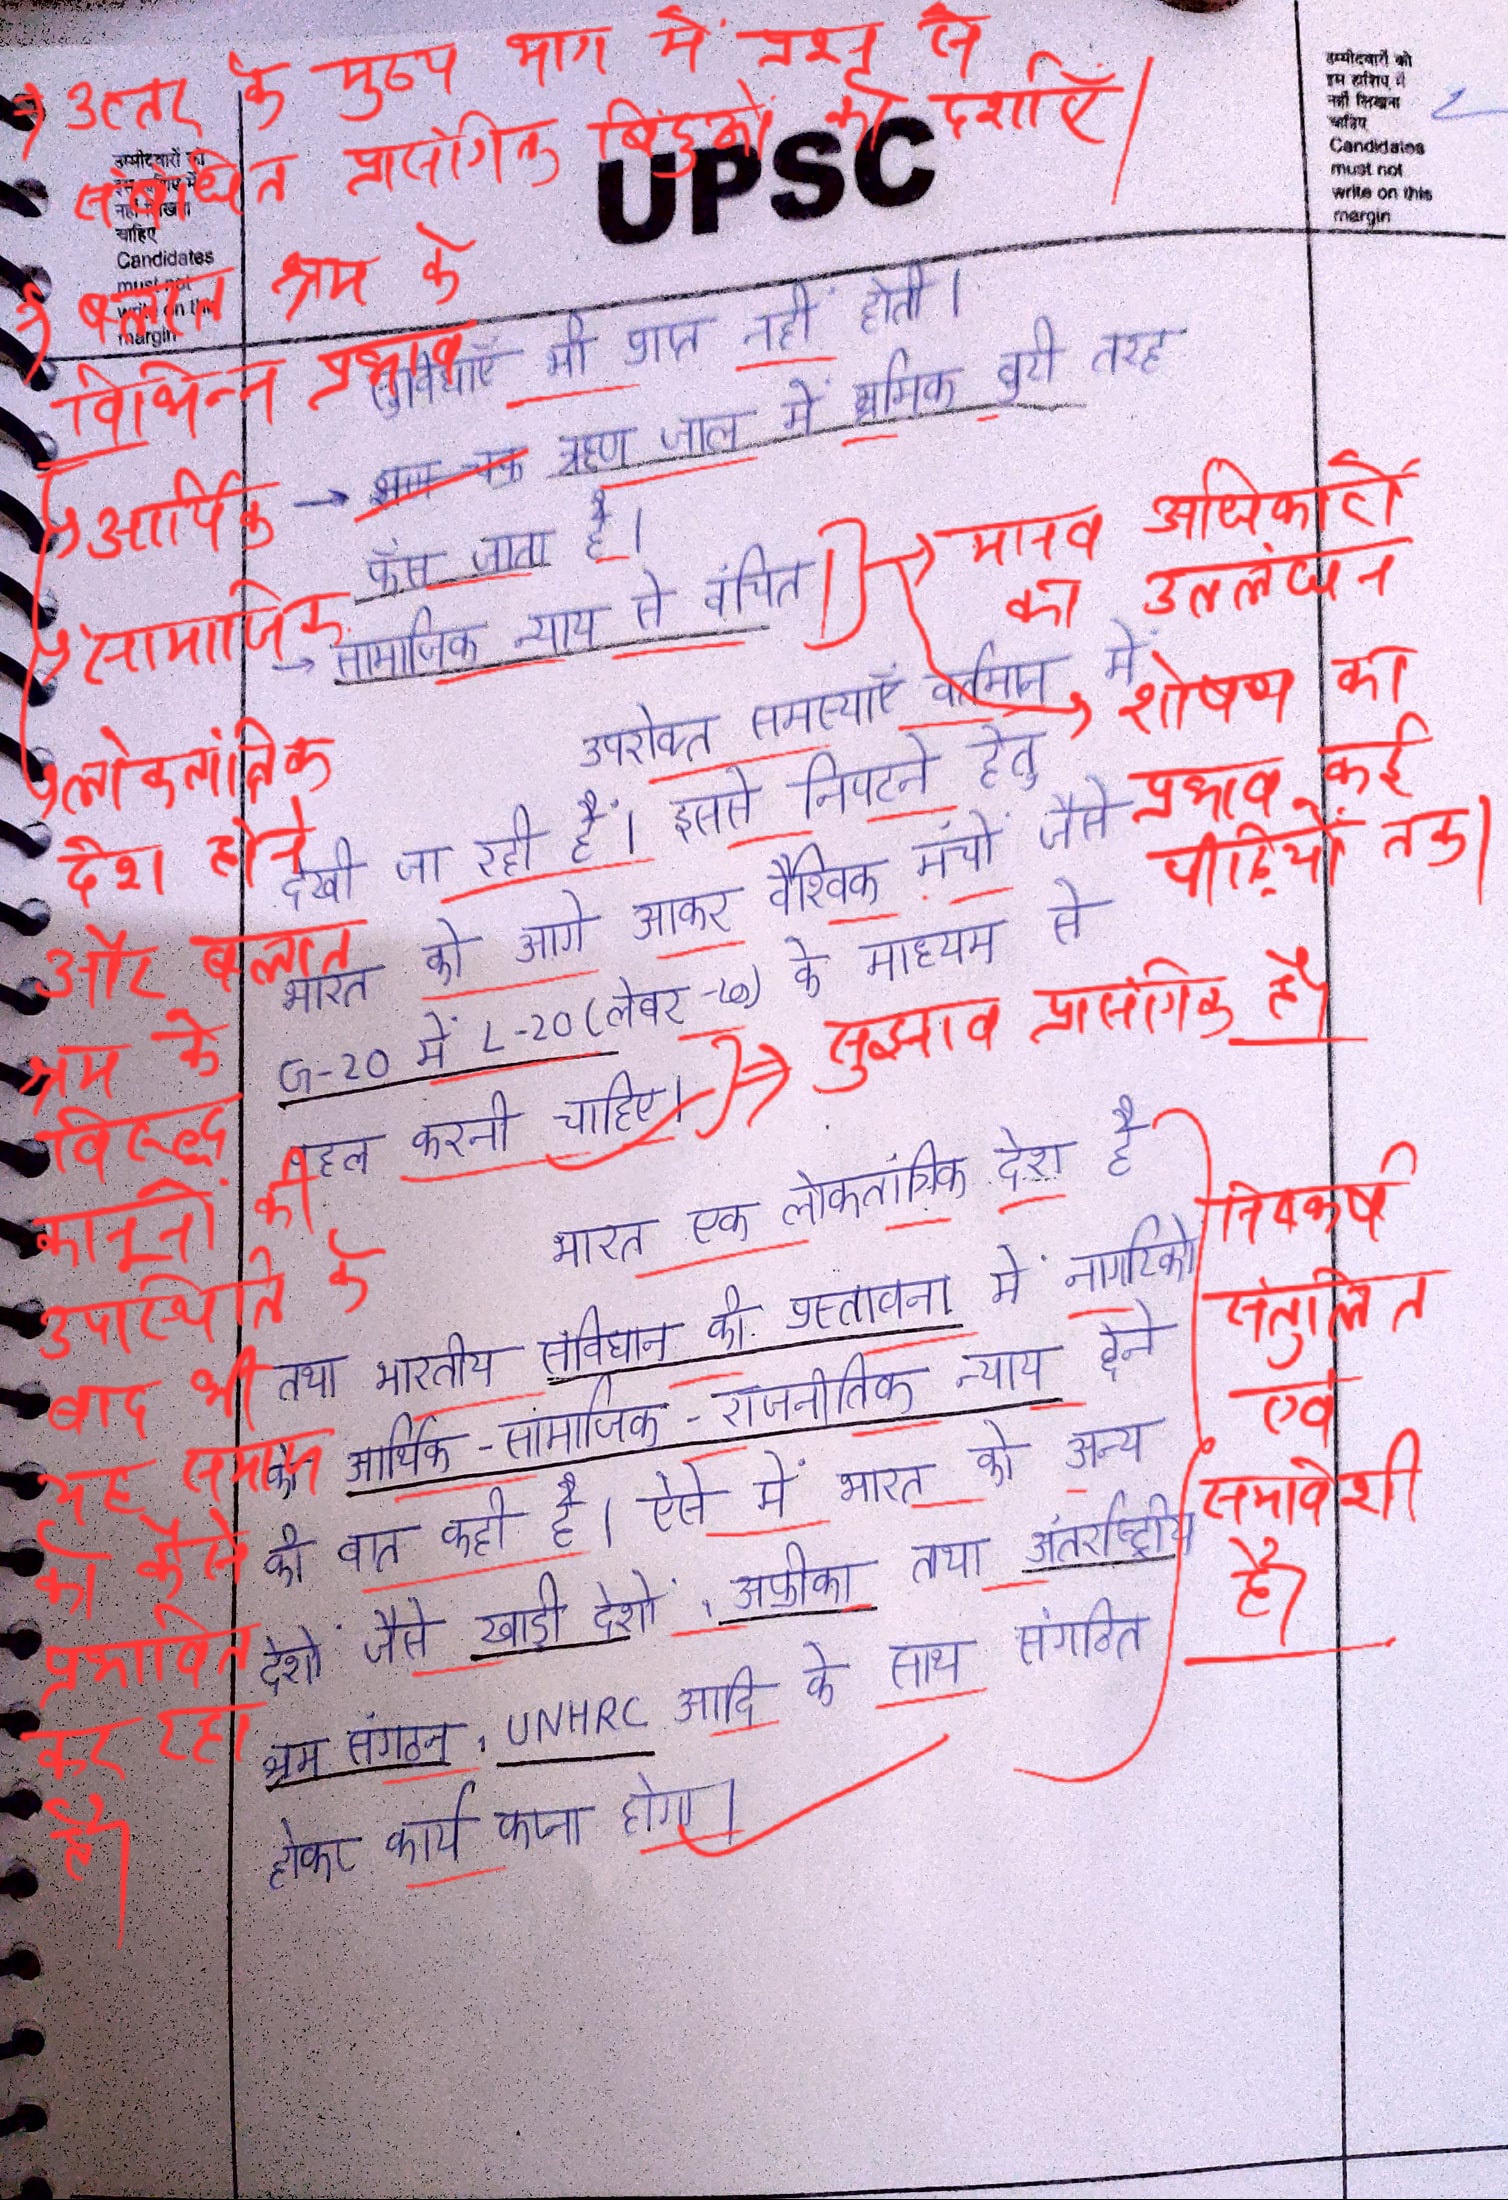 → उत्तर के मुख्य भाग में प्रश्न से
संबंधित प्रासंगिक बिंदुओं को दर्शाएँ।
उम्मीदवारों को
इस हाशिए में
नहीं लिखना
चाहिए
Candidates
must not
write on this
margin
UPSC
उम्मीदवारों को
इस हाशिए में
नहीं लिखना
चाहिए
Candidates
must not
write on this
margin
→ बलात श्रम के
विभिन्न प्रभाव
→ आर्थिक
→ सामाजिक
→ लोकतांत्रिक
देश होने
और बलात
श्रम के
विरुद्ध
कानूनों की
उपस्थिति के
बाद भी
यह समाज
को कैसे
प्रभावित
कर रहा
है।
सुविधाएँ भी प्राप्त नहीं होती।
→ ऋण जाल में श्रमिक बुरी तरह
फँस जाता है।
→ सामाजिक न्याय से वंचित
→ मानव अधिकारों
का उल्लंघन
→ शोषण का
प्रभाव कई
पीढ़ियों तक।
उपरोक्त समस्याएँ वर्तमान में
देखी जा रही हैं। इससे निपटने हेतु
भारत को आगे आकर वैश्विक मंचों जैसे
G-20 में L-20 (लेबर-२०) के माध्यम से
पहल करनी चाहिए।
⇒ सुझाव प्रासंगिक है।
भारत एक लोकतांत्रिक देश है
तथा भारतीय संविधान की प्रस्तावना में नागरिको
को आर्थिक - सामाजिक - राजनीतिक न्याय देने
की बात कही है। ऐसे में भारत को अन्य
देशों जैसे खाड़ी देशों, अफ्रीका तथा अंतर्राष्ट्रीय
श्रम संगठन, UNHRC आदि के साथ संगठित
होकर कार्य करना होगा।
निष्कर्ष
संतुलित
एवं
समावेशी
है।